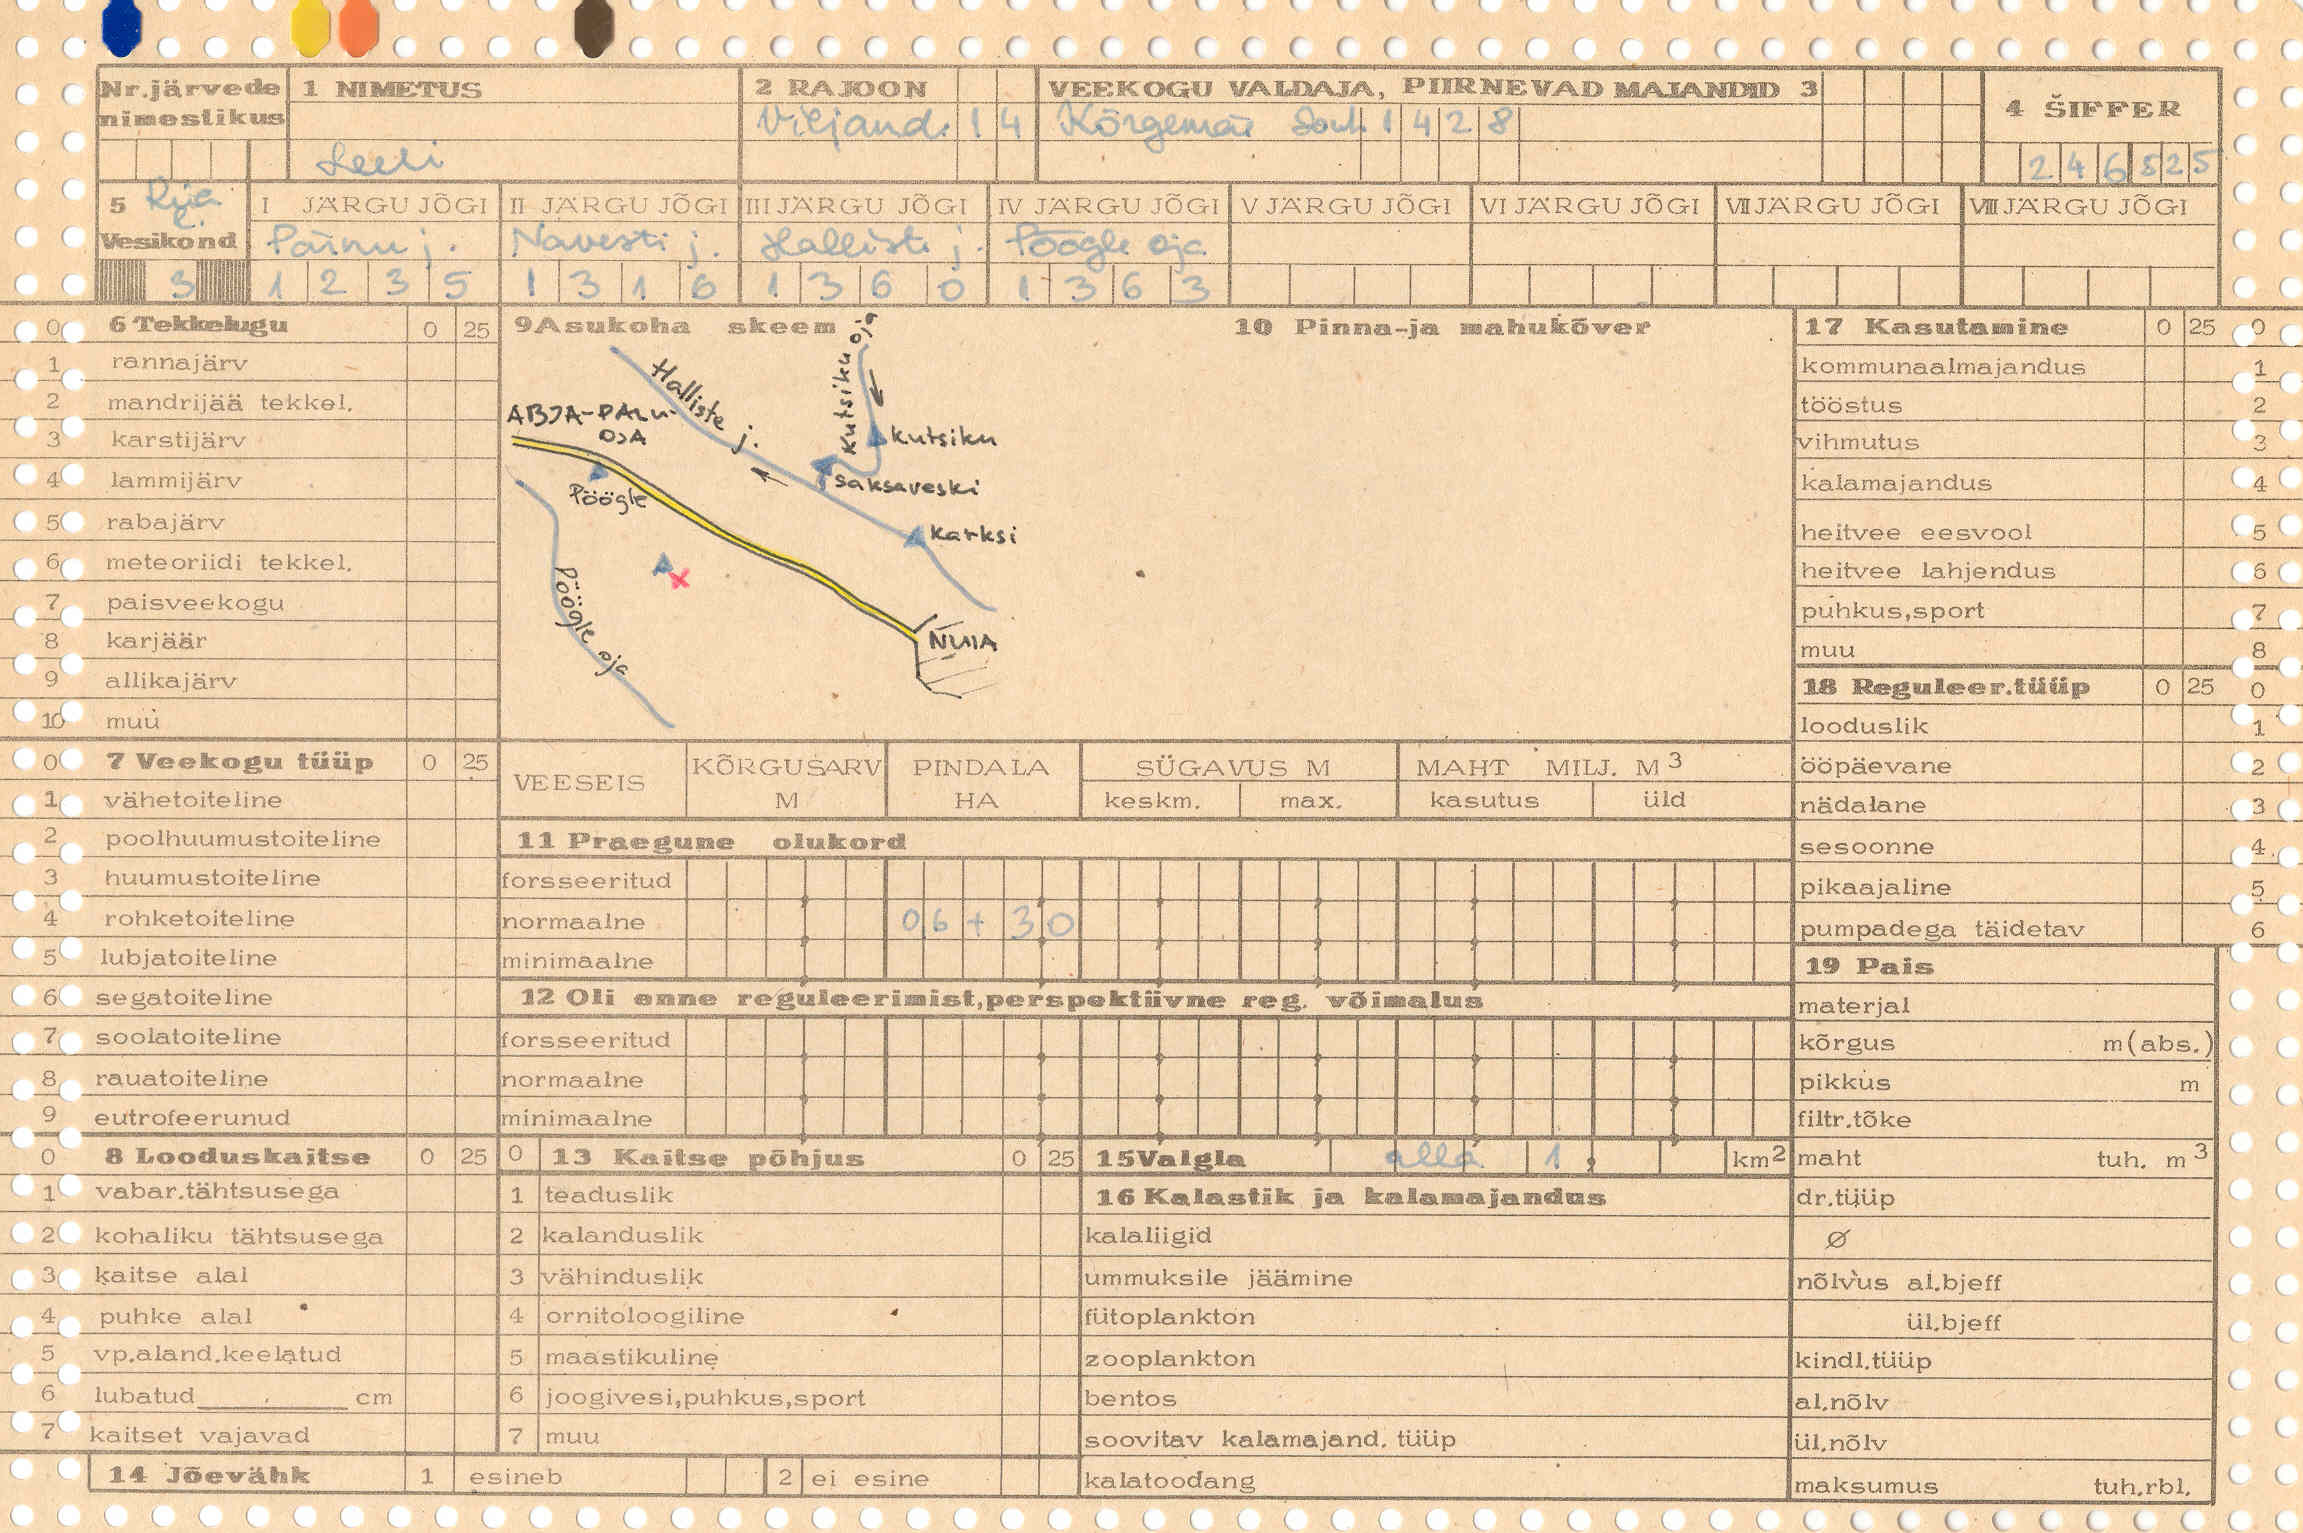 Nr.järvede nimestikus
1 NIMETUS
Leeli
2 RAJOON
Viljandi 14
VEEKOGU VALDAJA, PIIRNEVAD MAJANDID 3
Kõrgemäe Sovh. 1428
4 ŠIFFER
246525
5 Riia l.
Vesikond
3
I JÄRGU JÕGI
Pärnu j.
1235
II JÄRGU JÕGI
Navesti j.
1316
III JÄRGU JÕGI
Halliste j.
1360
IV JÄRGU JÕGI
Pöögle oja
1363
V JÄRGU JÕGI
VI JÄRGU JÕGI
VII JÄRGU JÕGI
VIII JÄRGU JÕGI
0 6 Tekkelugu 0 25
1 rannajärv
2 mandrijää tekkel.
3 karstijärv
4 lammijärv
5 rabajärv
6 meteoriidi tekkel.
7 paisveekogu
8 karjäär
9 allikajärv
10 muu
0 7 Veekogu tüüp 0 25
1 vähetoiteline
2 poolhuumustoiteline
3 huumustoiteline
4 rohketoiteline
5 lubjatoiteline
6 segatoiteline
7 soolatoiteline
8 rauatoiteline
9 eutrofeerunud
0 8 Looduskaitse 0 25
1 vabar.tähtsusega
2 kohaliku tähtsusega
3 kaitse alal
4 puhke alal
5 vp.aland.keelatud
6 lubatud cm
7 kaitset vajavad
14 Jõevähk 1 esineb 2 ei esine
9 Asukoha skeem
Kutsiku oja
Halliste j.
ABJA-PALU-
OJA
Kutsiku
Saksaveski
Pöögle
Karksi
Pöögle oja
NUIA
10 Pinna-ja mahukõver
VEESEIS
KÕRGUSARV M
PINDALA HA
SÜGAVUS M
keskm. max.
MAHT MILJ. M3
kasutus üld
11 Praegune olukord
forsseeritud
normaalne 06+30
minimaalne
12 Oli enne reguleerimist,perspektiivne reg. võimalus
forsseeritud
normaalne
minimaalne
0 13 Kaitse põhjus 0 25
1 teaduslik
2 kalanduslik
3 vähinduslik
4 ornitoloogiline
5 maastikuline
6 joogivesi,puhkus,sport
7 muu
15 Valgla alla 1, km2
16 Kalastik ja kalamajandus
kalaliigid
ummuksile jäämine
fütoplankton
zooplankton
bentos
soovitav kalamajand. tüüp
kalatoodang
17 Kasutamine 0 25 0
kommunaalmajandus 1
tööstus 2
vihmutus 3
kalamajandus 4
heitvee eesvool 5
heitvee lahjendus 6
puhkus,sport 7
muu 8
18 Reguleer.tüüp 0 25 0
looduslik 1
ööpäevane 2
nädalane 3
sesoonne 4
pikaajaline 5
pumpadega täidetav 6
19 Pais
materjal
kõrgus m(abs.)
pikkus m
filtr.tõke
maht tuh. m3
dr.tüüp
Ø
nõlvus al.bjeff
ül.bjeff
kindl.tüüp
al.nõlv
ül.nõlv
maksumus tuh.rbl.